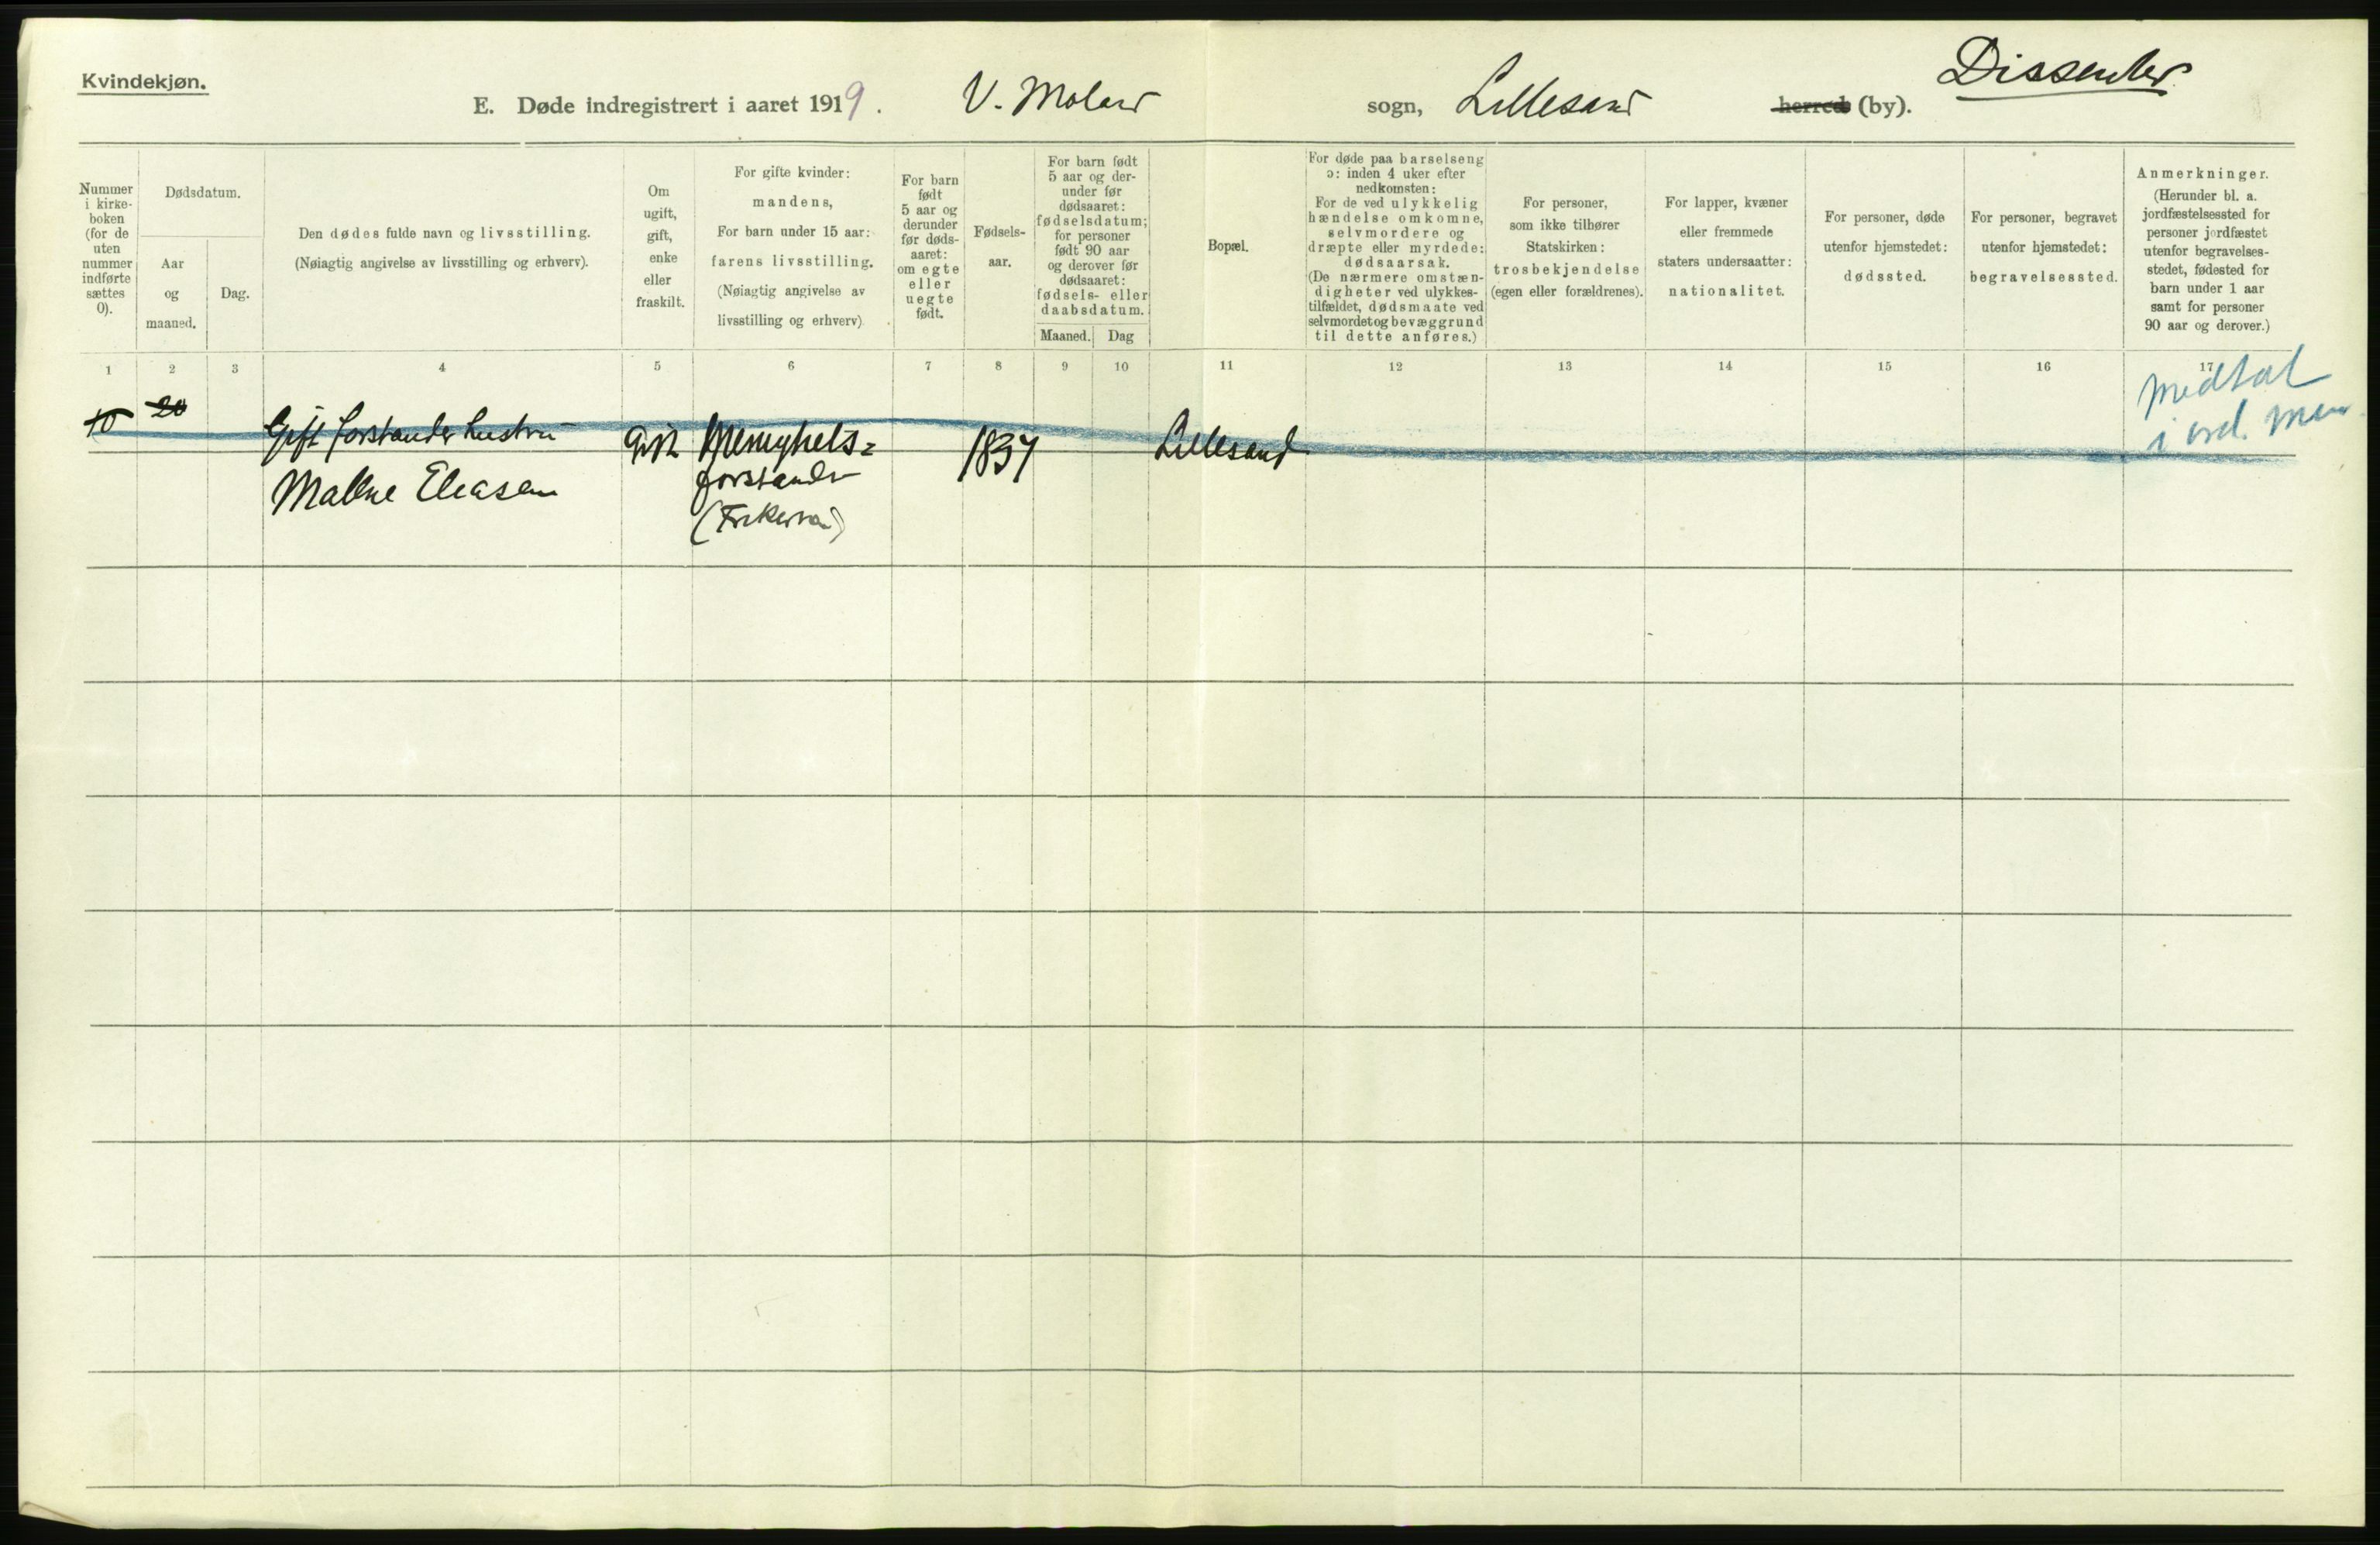 Kvindekjøn.
Dissenter
E. Døde indregistrert i aaret 1919. V. Moland sogn, Lillesand herred (by).
Nummer
i kirke-
boken
(for de
uten
nummer
indførte
sættes
0).
Dødsdatum.
Aar
og
maaned.
Dag.
Den dødes fulde navn og livsstilling.
(Nøiagtig angivelse av livsstilling og erhverv).
Om
ugift,
gift,
enke
eller
fraskilt.
For gifte kvinder:
mandens,
For barn under 15 aar:
farens livsstilling.
(Nøiagtig angivelse av
livsstilling og erhverv)
For barn
født
5 aar og
derunder
før døds-
aaret:
om egte
eller
uegte
født.
Fødsels-
aar.
For barn født
5 aar og der-
under før
dødsaaret:
fødselsdatum;
for personer
født 90 aar
og derover før
dødsaaret:
fødsels- eller
daabsdatum.
Maaned. Dag
Bopæl.
For døde paa barselseng
ɔ: inden 4 uker efter
nedkomsten:
For de ved ulykkelig
hændelse omkomne,
selvmordere og
dræpte eller myrdede:
dødsaarsak.
(De nærmere omstæn-
digheter ved ulykkes-
tilfældet, dødsmaate ved
selvmordet og bevæggrund
til dette anføres.)
For personer,
som ikke tilhører
Statskirken:
trosbekjendelse
(egen eller forældrenes).
For lapper, kvæner
eller fremmede
staters undersaatter:
nationalitet.
For personer, døde
utenfor hjemstedet:
dødssted.
For personer, begravet
utenfor hjemstedet:
begravelsessted.
Anmerkninger.
(Herunder bl. a.
jordfæstelsessted for
personer jordfæstet
utenfor begravelses-
stedet, fødested for
barn under 1 aar
samt for personer
90 aar og derover.)
1 2 3 4 5 6 7 8 9 10 11 12 13 14 15 16 17
10 20
Gift forstander hustru
Malene Eliasen
Gift
Menighets=
forstander
(Frikirken)
1837
Lillesand
Medtat
i ord.